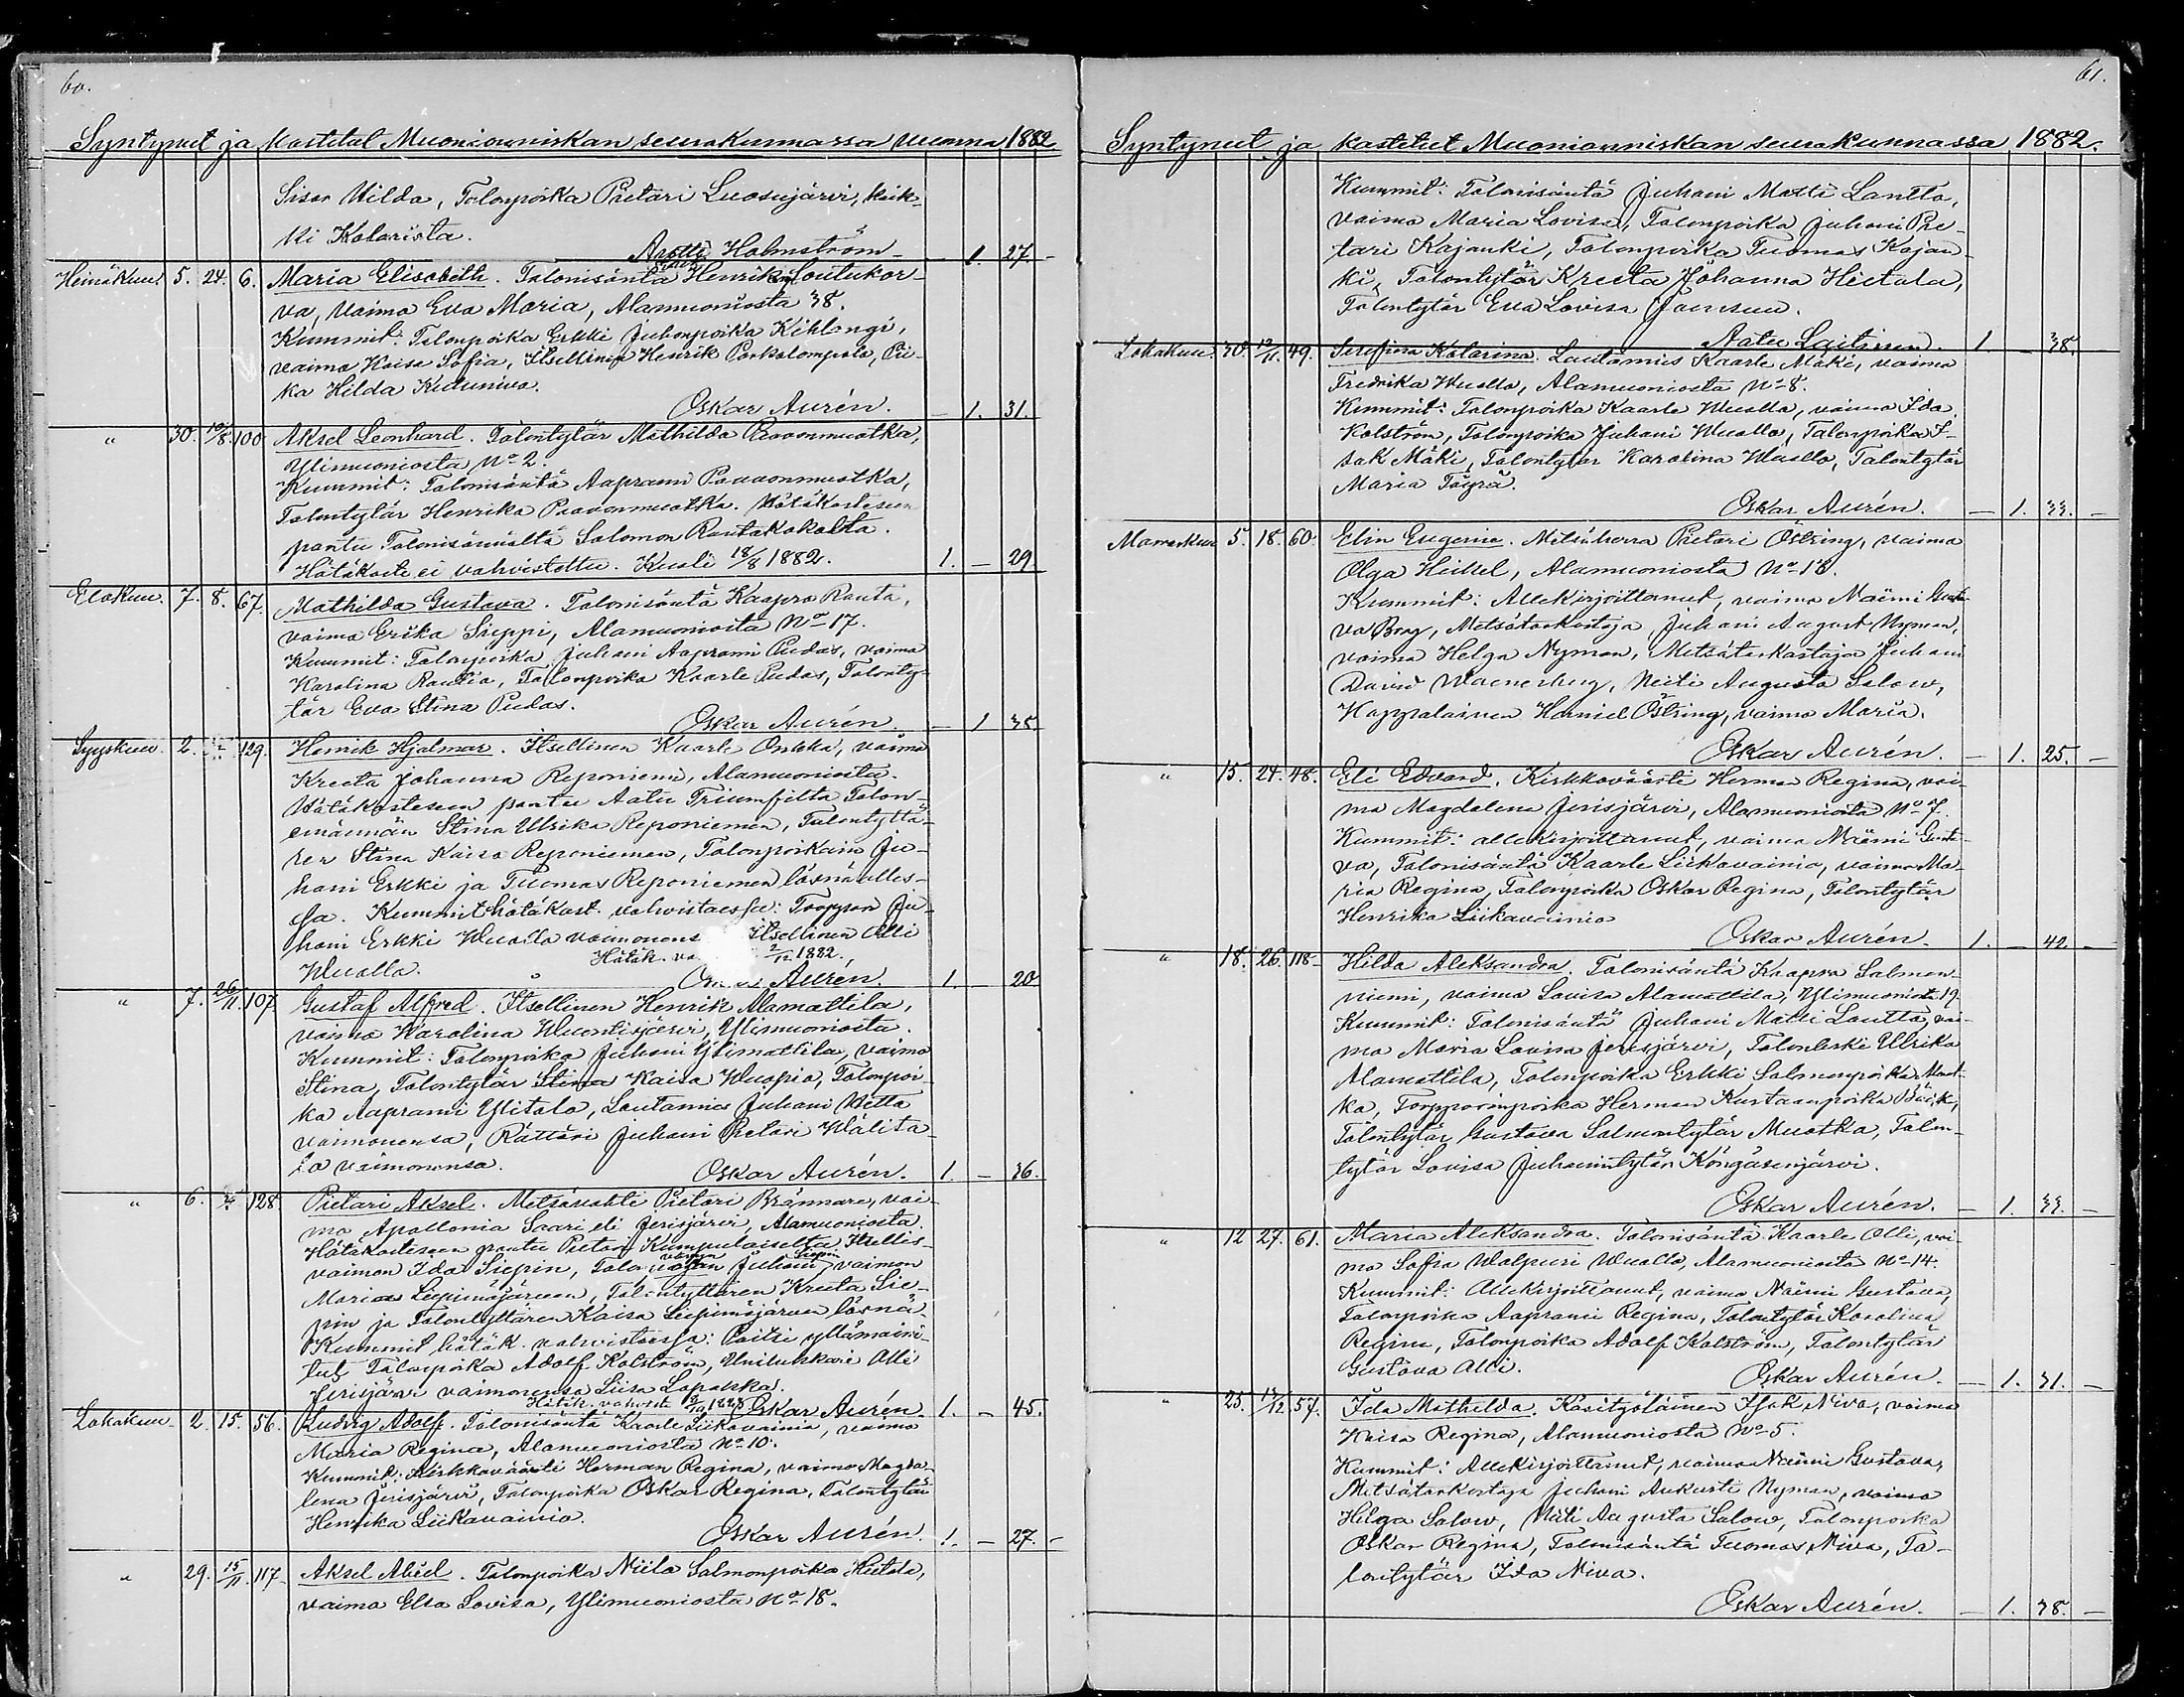 60.
Syntynet ja kastetut Muonionniskan seurakunnassa vuonna 1882
Sisar Hilda, Talonpoika Pietari Luosujärvi, kaik-
ki Kolarista.
Antti Holmström 1. 27.
Heinäkuu. 5. 24. 6. Maria Elisabeth. Talonisäntä Henrik Loutukor-
va, vaimo Eva Maria, Alamuoniosta 38.
Kummit: Talonpoika Erkki Juhonpoika Kihlangi,
vaimo Kaisa Sofia, Itsellinen Henrik Parkalompolo, Pii-
ka Hilda Kutuniva.
Oskar Aurén. — 1. 31.
" 30. 10/8. 100 Aksel Leonhard. Talontytär Mathilda Paavonmuotka,
Ylimuoniosta No 2.
Kummit: Talonisäntä Aaprami Paavonmuotka,
Talontytär Henrika Paavonmuotka. Hätäkasteseen
pantu Talonisännältä Salomon Rautakokolta.
Hätäkaste ei vahvistettu. Kuoli 18/8 1882. 1. — 29.
Elokuu. 7. 8. 67. Mathilda Gustava. Talonisäntä Kaapro Rauta,
vaimo Erika Sieppi, Alamuoniosta No 17.
Kummit: Talonpoika Juhani Aaprami Pudas, vaimo
Karolina Rautio, Talonpoika Kaarle Pudas, Talonty-
tär Eva Stina Pudas.
Oskar Aurén. — 1 35
Syyskuu. 2. 129. Henrik Hjalmar. Itsellinen Kaarle Onkka, vaimo
Kreeta Johanna Reponiemi, Alamuoniosta.
Hätäkasteseen pantu Aatu Triumfilta Talon-
emännän Stina Ulrika Reponiemen, Talontyttä-
ren Stina Kaisa Reponiemen, Talonpoikain Ju-
hani Erkki ja Tuomas Reponiemen läsnä olles-
sa. Kummit hätäkast. vahvistaessa: Torppari Ju-
hani Erkki Wuollo vaimonens Itsellinen Olli
Wuollo. Hätäk. va 2/12 1882.
Aurén. 1. — 20
" 7. 26/11. 107. Gustaf Alfred. Itsellinen Henrik Alamattila,
vaimo Karolina Wuontisjärvi, Ylimuoniosta.
Kummit: Talonpoika Juhani Ylimattila, vaimo
Stina, Talontytär Stina Kaisa Wuopio, Talonpoi-
ka Aaprami Ylitalo, Lautamies Juhani Wetta
vaimonensa, Rättäri Juhani Pietari Wälita-
lo vaimonensa. Oskar Aurén. 1. — 36.
" 6. 128. Pietari Aksel. Metsävahti Pietari Brännare, vai-
mo Apollonia Saari eli Jerisjärvi, Alamuoniosta.
Hätäkasteseen pantu Pietari Kumpulaiselta Itsellis-
vaimon Ida Siepin, Talo Juhani vaimon
Marian Liepimäjärven, Talontyttären Kreeta Sie-
pin ja Talontyttären Kaisa Liepimäjärven läsnä
Kummit hätäk. vahvistaissa: Paitsi yllämaini-
tut Talonpoika Adolf Kolström, Unilukkari Olli
Jerisjärvi vaimonensa Liisa Lapakka.
Hätäk. vahvist. Oskar Aurén 1. — 45.
Lokakuu 2. 15. 56. Ludvig Adolf. Talonisäntä Kaarle Liikavainio, vaimo
Maria Regina, Alamuoniosta No 10.
Kummit: Kirkkovääsrti Herman Regina, vaimo Magda-
lena Jerisjärvi, Talonpoika Oskar Regina, Talontytär
Henrika Liikavainio.
Oskar Aurén. 1. — 27. -
" 29. 15/11. 117. Aksel Abiel. Talonpoika Niilo Salmonpoika Hietala,
vaimo Elsa Lovisa, Ylimuoniosta No 18.
61.
Syntynet ja kastetut Muonionniskan seurakunnassa 1882.
Kummit: Talonisäntä Juhani Matti Lantto,
vaimo Maria Lovisa, Talonpoika Juhani Pie-
tari Kajanki, Talonpoika Tuomas Kajan-
ki, Talontytär Kreeta Johanna Hietala,
Talontytär Eva Lovisa Joensuu.
Aatu Laitinen. 1 — 38.
Lokakuu. 30. 12/11. 49. Serafina Katarina. Lautamies Kaarle Mäki, vaimo
Fredrika Wuollo, Alamuoniosta No 8.
Kummit: Talonpoika Kaarle Wuollo, vaimo Ida
Kolström, Talonpoika Juhani Wuollo, Talonpoika I-
sak Mäki, Talontytär Karolina Wuollo, Talontytär
Maria Töyrä.
Oskar Aurén. — 1. 33. -
Marraskuu 5. 18. 60. Elin Eugenia. Metsäherra Pietari Östring, vaimo
Olga Heikel, Alamuoniosta No 18.
Kummit: Allekirjoittanut, vaimo Naëmi Gusta-
va Borg, Metsätarkastaja Juhani August Nyman,
vaimo Helga Nyman, Metsätarkastaja Juhani
David Waenerberg, Neiti Augusta Salow,
Kappalainen Harniel Östring, vaimo Maria.
Oskar Aurén. — 1. 25. -
" 15. 24. 48. Eli Edvard. Kirkkovääsrti Herman Regina, vai-
mo Magdalena Jerisjärvi, Alamuoniosta No 7.
Kummit: allekirjoittanut, vaimo Naëmi Gusta-
va, Talonisäntä Kaarle Liikavainio, vaimo Ma-
ria Regina, Talonpoika Oskar Regina, Talontytär
Henrika Liikavainio
Oskar Aurén. 1. — 42 -
" 18. 26. 118- Hilda Aleksandra. Talonisäntä Kaapra Salmon-
niemi, vaimo Lovisa Alamattila, Ylimuoniosta 19.
Kummit: Talonisäntä Juhani Matti Lautto, vai-
mo Maria Lovisa Jerisjärvi, Talonleski Ulrika
Alamattila, Talonpoika Erkki Salomonpoika Muot-
ka, Torpparinpoika Herman Kustaanpoika Björk,
Talontytär Gustava Salmontytär Muotka, Talon-
tytär Lovisa Juhanintytär Köngäsenjärvi.
Oskar Aurén. — 1. 33. -
" 12 27. 61. Maria Aleksandra. Talonisäntä Kaarle Olli, vai-
mo Sofia Walpuri Wuollo, Alamuoniosta No 14.
Kummit: Allekirjoittanut, vaimo Naëmi Gustava,
Talonpoika Aaprami Regina, Talontytär Karolina
Regina, Talonpoika Adolf Kolström, Talontytär
Gustava Olli. Oskar Aurén. — 1. 31. -
" 23. 13/12 57. Ida Mathilda. Käsityöläinen Isak Niva, vaimo
Kaisa Regina, Alamuoniosta No 5.
Kummit: Allekirjoittanut, vaimo Naëmi Gustava,
Metsätarkastaja Juhani Aukusti Nyman, vaimo
Helga Salow, Neiti Augusta Salow, Talonpoika
Oskar Regina, Talonisäntä Tuomas Niva, Ta-
lontytär Ida Niva.
Oskar Aurén. — 1. 38. -